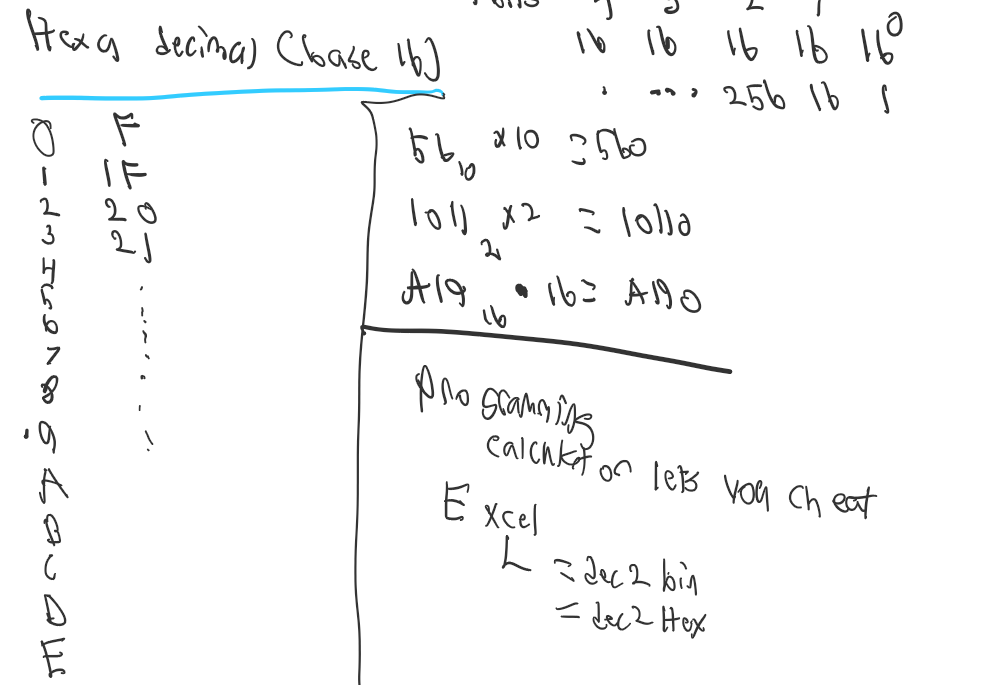 Hexa decimal (base 16)
16 16 16 16 16⁰
. .... 256 16 1
0 F
1 1F
2 20
3 21
4
5
6
7
8
9
A
B
C
D
E
56₁₀ x10 = 560
1011₂ x2 = 10110
A19₁₆ • 16 = A190
Programming
calculator lets you cheat
Excel
L = dec2bin
= dec2Hex